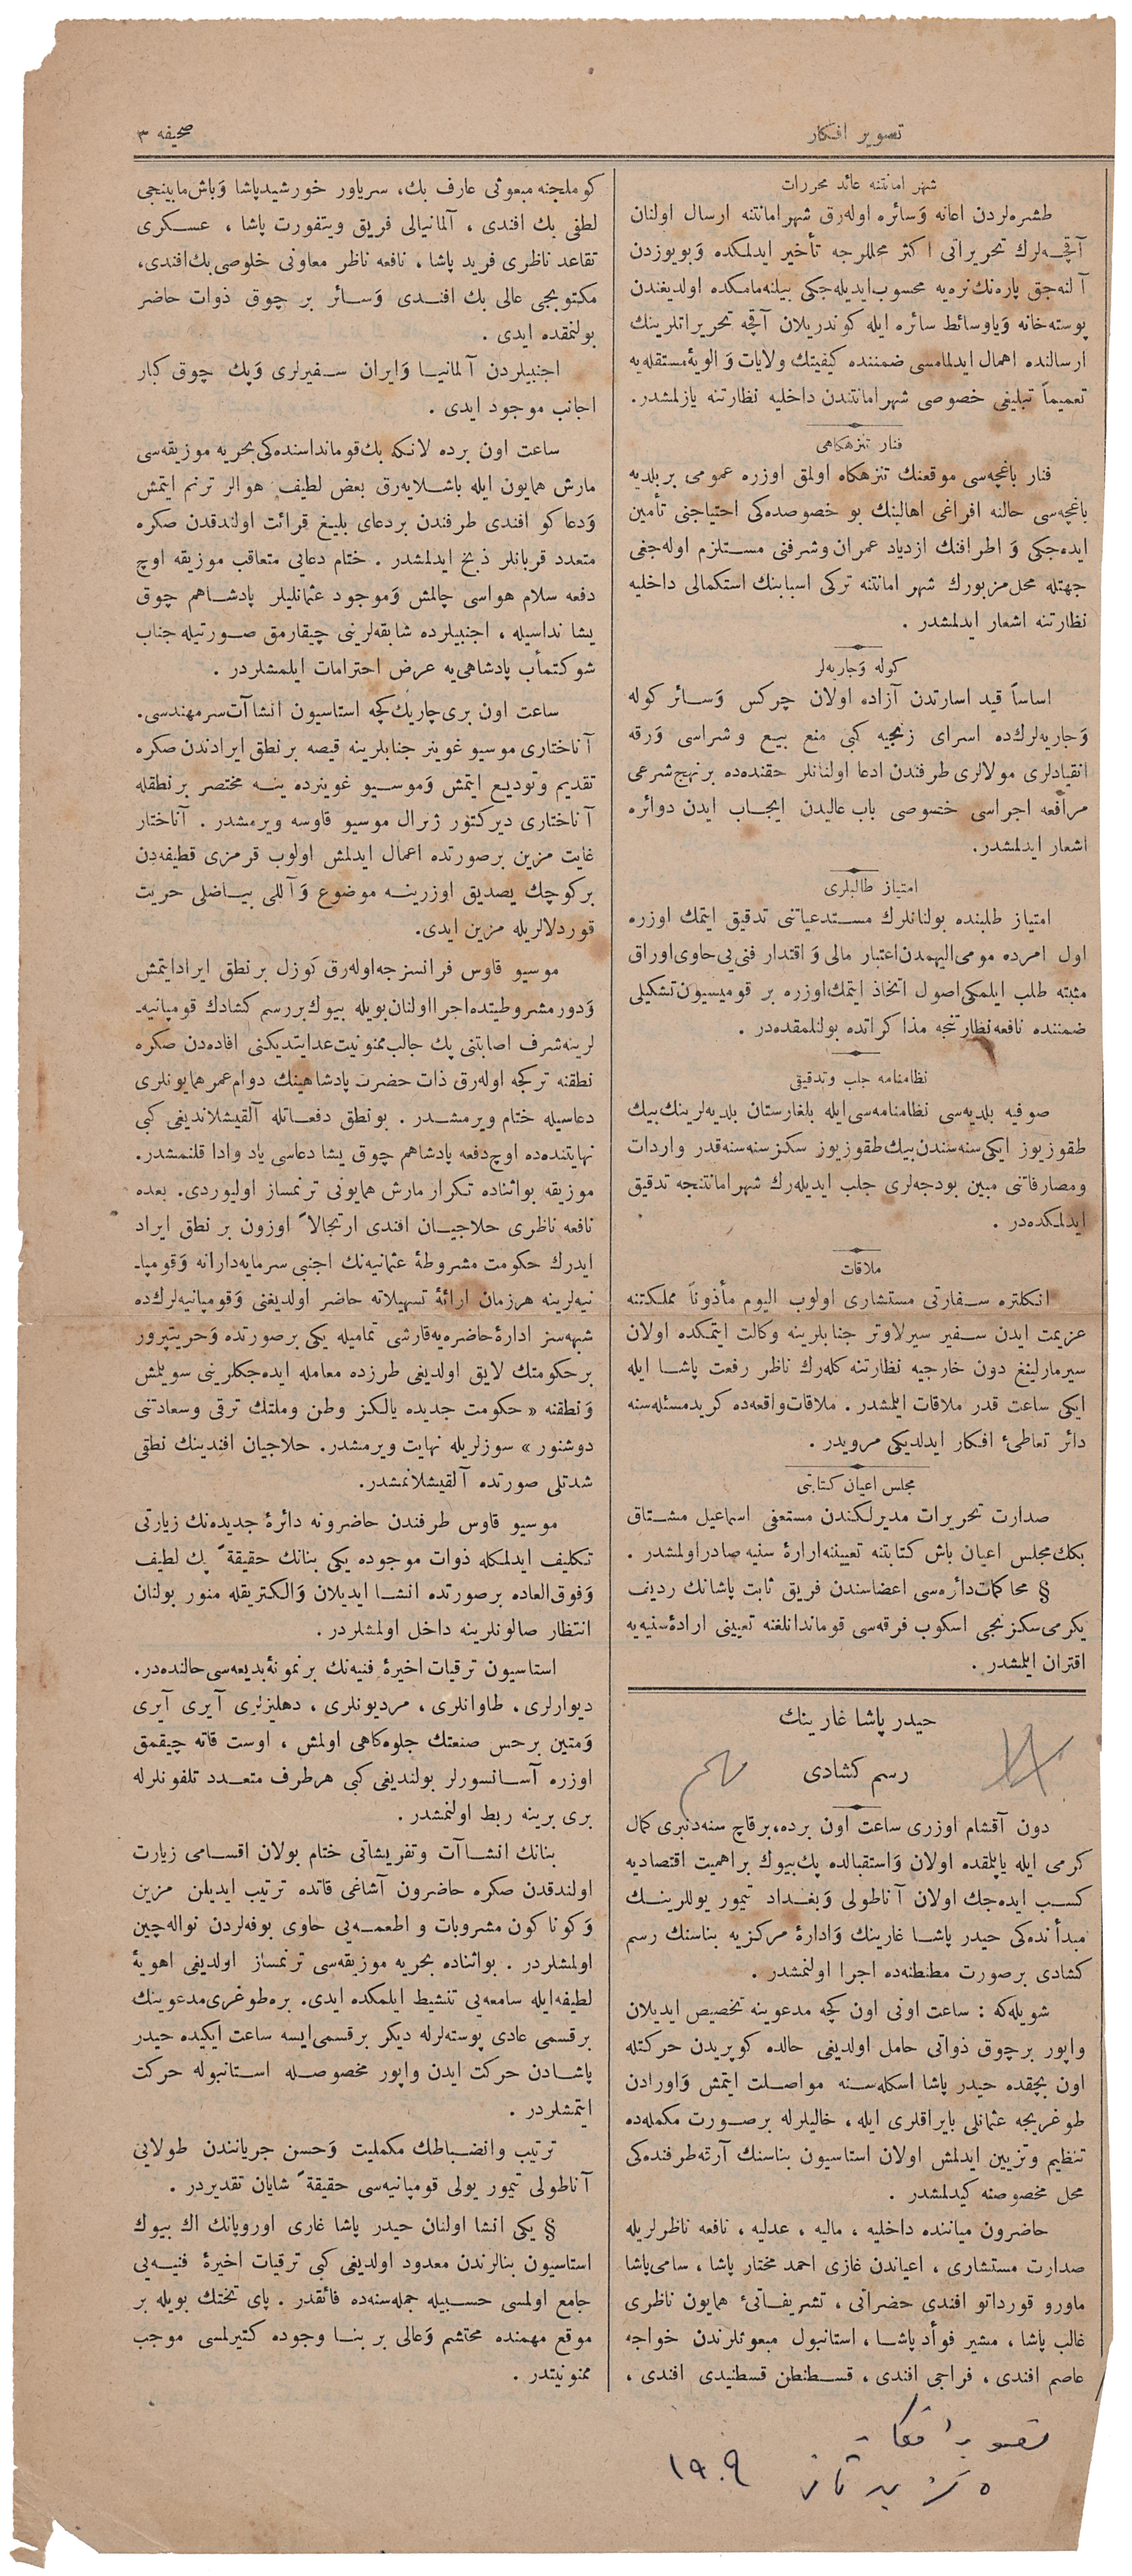 تصویر افكار
صحیفه ٣
شهر امانتنه عائد محررات
طشره‌لردن اعانه وَسائره اوله‌رق شهر امانتنه ارسال اولنان
آقچه‌لرك تحریراتی اكثر محللرجه تأخیر ایدلمكده وَبویوزدن
آلنه‌جق پاره‌نك نره‌یه محسوب ایدیله‌جكی بیلنه‌مامكده اولدیغندن
پوسته‌خانه وَیاوسائط سائره ایله كوندریلان آقچه تحریراتلرینك
ارسالنده اهمال ایدلمامسی ضمننده كیفیتك ولایات وَالویهٔ مستقله‌یه
تعمیماً تبلیغی خصوصی شهر امانتندن داخلیه نظارتنه یازلمشدر.
فنار تنزهكاهی
فنار باغچه‌سی موقعنك تنزهكاه اولمق اوزره عمومی بر بلدیه
باغچه‌سی حالنه افراغی اهالینك بو خصوصده‌كی احتیاجنی تأمین
ایده‌جكی وَ اطرافنك ازدیاد عمران وشرفنی مستلزم اوله‌جغی
جهتله محل مزبورك شهر امانتنه تركی اسبابنك استكمالی داخلیه
نظارتنه اشعار ایدلمشدر .
كوله وَجاریه‌لر
اساساً قید اسارتدن آزاده اولان چركس وَسائر كوله
وَجاریه‌لرك‌ده اسرای زنجیه كبی منع بیع و شراسی وَرقه
انقیادلری مولالری طرفندن ادعا اولنانلر حقنده‌ده بر نهج شرعی
مرافعه اجراسی خصوصی باب عالیدن ایجاب ایدن دوائره
اشعار ایدلمشدر.
امتیاز طالبلری
امتیاز طلبنده بولنانلرك مستدعیاتنی تدقیق ایتمك اوزره
اول امرده مومی الیهمدن اعتبار مالی وَ اقتدار فنی‌یی حاوی اوراق
مثبته طلب ایلمكی اصول اتخاذ ایتمك اوزره بر قومیسیون تشكیلی
ضمننده نافعه نظارتنجه مذاكراتده بولنلمقده‌در .
نظامنامه جلب وتدقیقی
صوفیه بلدیه‌سی نظامنامه‌سی ایله بلغارستان بلدیه‌لرینك بیك
طقوزیوز ایكی سنه‌سندن بیك طقوزیوز سكز سنه‌سنه قدر واردات
ومصارفاتنی مبین بودجه‌لری جلب ایدیله‌رك شهر امانتنجه تدقیق
ایدلمكده‌در .
ملاقات
انكلتره سفارتی مستشاری اولوب الیوم مأذوناً مملكتنه
عزیمت ایدن سفیر سیرلاوتر جنابلرینه وكالت ایتمكده اولان
سیرمارلینغ دون خارجیه نظارتنه كله‌رك ناظر رفعت پاشا ایله
ایكی ساعت قدر ملاقات ایلمشدر . ملاقات واقعه‌ده كرید مسئله‌سنه
دائر تعاطیٔ افكار ایدلدیكی مرویدر .
مجلس اعیان كتابتی
صدارت تحریرات مدیرلكندن مستعفی اسماعیل مشتاق
بكك مجلس اعیان باش كتابتنه تعییننه اراره سنیه صادر اولمشدر .
§ محاكمات دائره‌سی اعضاسندن فریق ثابت پاشانك ردیف
یكرمی سكزنجی اسكوب فرقه‌سی قوماندانلغنه تعیینی ارادهٔ سنیه‌یه
اقتران ایلمشدر .
حیدر پاشا غارینك
رسم كشادی
مهم
دون آقشام اوزری ساعت اون برده، برقاچ سنه‌دنبری كمال
كرمی ایله یاپلمقده اولان وَاستقبالده پك بیوك بر اهمیت اقتصادیه
كسب ایده‌جك اولان آناطولی وَبغداد تیمور یوللرینك
مبدأنده‌كی حیدر پاشا غارینك وَادارهٔ مركزیه بناسنك رسم
كشادی برصورت مطنطنه‌ده اجرا اولنمشدر .
شویله‌كه : ساعت اونی اون كچه مدعوینه تخصیص ایدیلان
واپور برچوق ذواتی حامل اولدیغی حالده كوپریدن حركتله
اون بچقده حیدر پاشا اسكله‌سنه مواصلت ایتمش وَاورادن
طوغریجه عثمانلی بایراقلری ایله، خالیلرله برصورت مكمله‌ده
تنظیم وتزیین ایدلمش اولان استاسیون بناسنك آرقه‌طرفنده‌كی
محل مخصوصنه كیدلمشدر .
حاضرون میاننده داخلیه ، مالیه ، عدلیه ، نافعه ناظرلریله
صدارت مستشاری ، اعیاندن غازی احمد مختار پاشا ، سامی پاشا
ماورو قورداتو افندی حضراتی ، تشریفاتیٔ همایون ناظری
غالب پاشا ، مشیر فوأد پاشا ، استانبول مبعوثلرندن خواجه
عاصم افندی ، فراجی افندی ، قسطنطن قسطنیدی افندی ،
كوملجنه مبعوثی عارف بك، سریاور خورشیدپاشا وَباش مابینجی
لطفی بك افندی ، آلمانیالی فریق ویتفورت پاشا ، عسكری
تقاعد ناظری فرید پاشا ، نافعه ناظر معاونی خلوصی بك افندی،
مكتوبجی عالی بك افندی وَسائر بر چوق ذوات حاضر
بولنمقده ایدی .
اجنبیلردن آلمانیا وَایران سفیرلری وَپك چوق كبار
اجانب موجود ایدی .
ساعت اون برده لانكه بك قومانداسنده‌كی بحریه موزیقه‌سی
مارش همایون ایله باشلایه‌رق بعض لطیف هوالر ترنم ایتمش
وَدعاكو افندی طرفندن بردعای بلیغ قرائت اولندقدن صكره
متعدد قربانلر ذبح ایدلمشدر . ختام دعایی متعاقب موزیقه اوچ
دفعه سلام هواسی چالمش وَموجود عثمانلیلر پادشاهم چوق
یشا نداسیله ، اجنبیلرده شابقه‌لرینی چیقارمق صورتیله جناب
شوكتمأب پادشاهی‌یه عرض احترامات ایلمشلردر .
ساعت اون بری چاریك كچه استاسیون انشاآت سرمهندسی.
آناختاری موسیو غوینر جنابلرینه قیصه بر نطق ایرادندن صكره
تقدیم وتودیع ایتمش وَموسیو غوینرده ینه مختصر برنطقله
آناختاری دیركتور ژنرال موسیو قاوسه ویرمشدر . آناختار
غایت مزین برصورتده اعمال ایدلمش اولوب قرمزی قطیفه‌دن
بركوچك یصدیق اوزرینه موضوع وَآللی بیاضلی حریت
قوردلالریله مزین ایدی.
موسیو قاوس فرانسزجه اوله‌رق كوزل برنطق ایراد ایتمش
وَدور مشروطیتده اجرا اولنان بویله بیوك بررسم كشادك قومپانیه‌ـ
لرینه شرف اصابتنی پك جالب ممنونیت عد ایتدیكنی افاده‌دن صكره
نطقنه تركجه اوله‌رق ذات حضرت پادشاهینك دوام عمر همایونلری
دعاسیله ختام ویرمشدر . بو نطق دفعاتله آلقیشلاندیغی كبی
نهایتنده‌ده اوچ دفعه پادشاهم چوق یشا دعاسی یاد وادا قلنمشدر.
موزیقه بواثناده تكرار مارش همایونی ترنمساز اولیوردی. بعده
نافعه ناظری حلاجیان افندی ارتجالاً اوزون بر نطق ایراد
ایدرك حكومت مشروطهٔ عثمانیه‌نك اجنبی سرمایه‌دارانه وَقومپاـ
نیه‌لرینه هرزمان ارائهٔ تسهیلاته حاضر اولدیغنی وَقومپانیه‌لرك‌ده
شبهه‌سز ادارهٔ حاضره‌یه قارشی تمامیله یكی برصورتده وَحریتپرور
برحكومتك لایق اولدیغی طرزده معامله ایده‌جكلرینی سویلمش
وَنطقنه « حكومت جدیده یالكز وطن وملتك ترقی وسعادتنی
دوشنور » سوزلریله نهایت ویرمشدر. حلاجیان افندینك نطقی
شدتلی صورتده آلقیشلانمشدر.
موسیو قاوس طرفندن حاضرونه دائرهٔ جدیده‌نك زیارتی
تكلیف ایدلمكله ذوات موجوده یكی بنانك حقیقةً پك لطیف
وَفوق العاده برصورتده انشا ایدیلان وَالكتریقله منور بولنان
انتظار صالونلرینه داخل اولمشلردر .
استاسیون ترقیات اخیرهٔ فنیه‌نك برنمونهٔ بدیعه‌سی حالنده‌در.
دیوارلری، طاوانلری، مردیونلری، دهلیزلری آیری آیری
وَمتین برحس صنعتك جلوه‌كاهی اولمش ، اوست قاته چیقمق
اوزره آسانسورلر بولندیغی كبی هرطرف متعدد تلفونلرله
بری برینه ربط اولنمشدر .
بنانك انشاآت وتفریشاتی ختام بولان اقسامی زیارت
اولندقدن صكره حاضرون آشاغی قاتده ترتیب ایدیلن مزین
وَكوناكون مشروبات و اطعمه‌یی حاوی بوفه‌لردن نواله‌چین
اولمشلردر . بواثناده بحریه موزیقه‌سی ترنمساز اولدیغی اهویهٔ
لطیفه‌ایله سامعه‌یی تنشیط ایلمكده ایدی. بره‌طوغری مدعوینك
برقسمی عادی پوسته‌لرله دیكر برقسمی ایسه ساعت ایكیده حیدر
پاشادن حركت ایدن واپور مخصوصله استانبوله حركت
ایتمشلردر .
ترتیب وانضباطك مكملیت وَحسن جریانندن طولایی
آناطولی تیمور یولی قومپانیه‌سی حقیقةً شایان تقدیردر .
§ یكی انشا اولنان حیدر پاشا غاری اوروپانك اك بیوك
استاسیون بنالرندن معدود اولدیغی كبی ترقیات اخیرهٔ فنیه‌یی
جامع اولمسی حسبیله جمله‌سنه‌ده فائقدر . پای تختك بویله بر
موقع مهمنده محتشم وَعالی بر بنا وجوده كتیرلمسی موجب
ممنونیتدر .
تصویر افكار
٥ تشرین ثانی ١٩٠٩